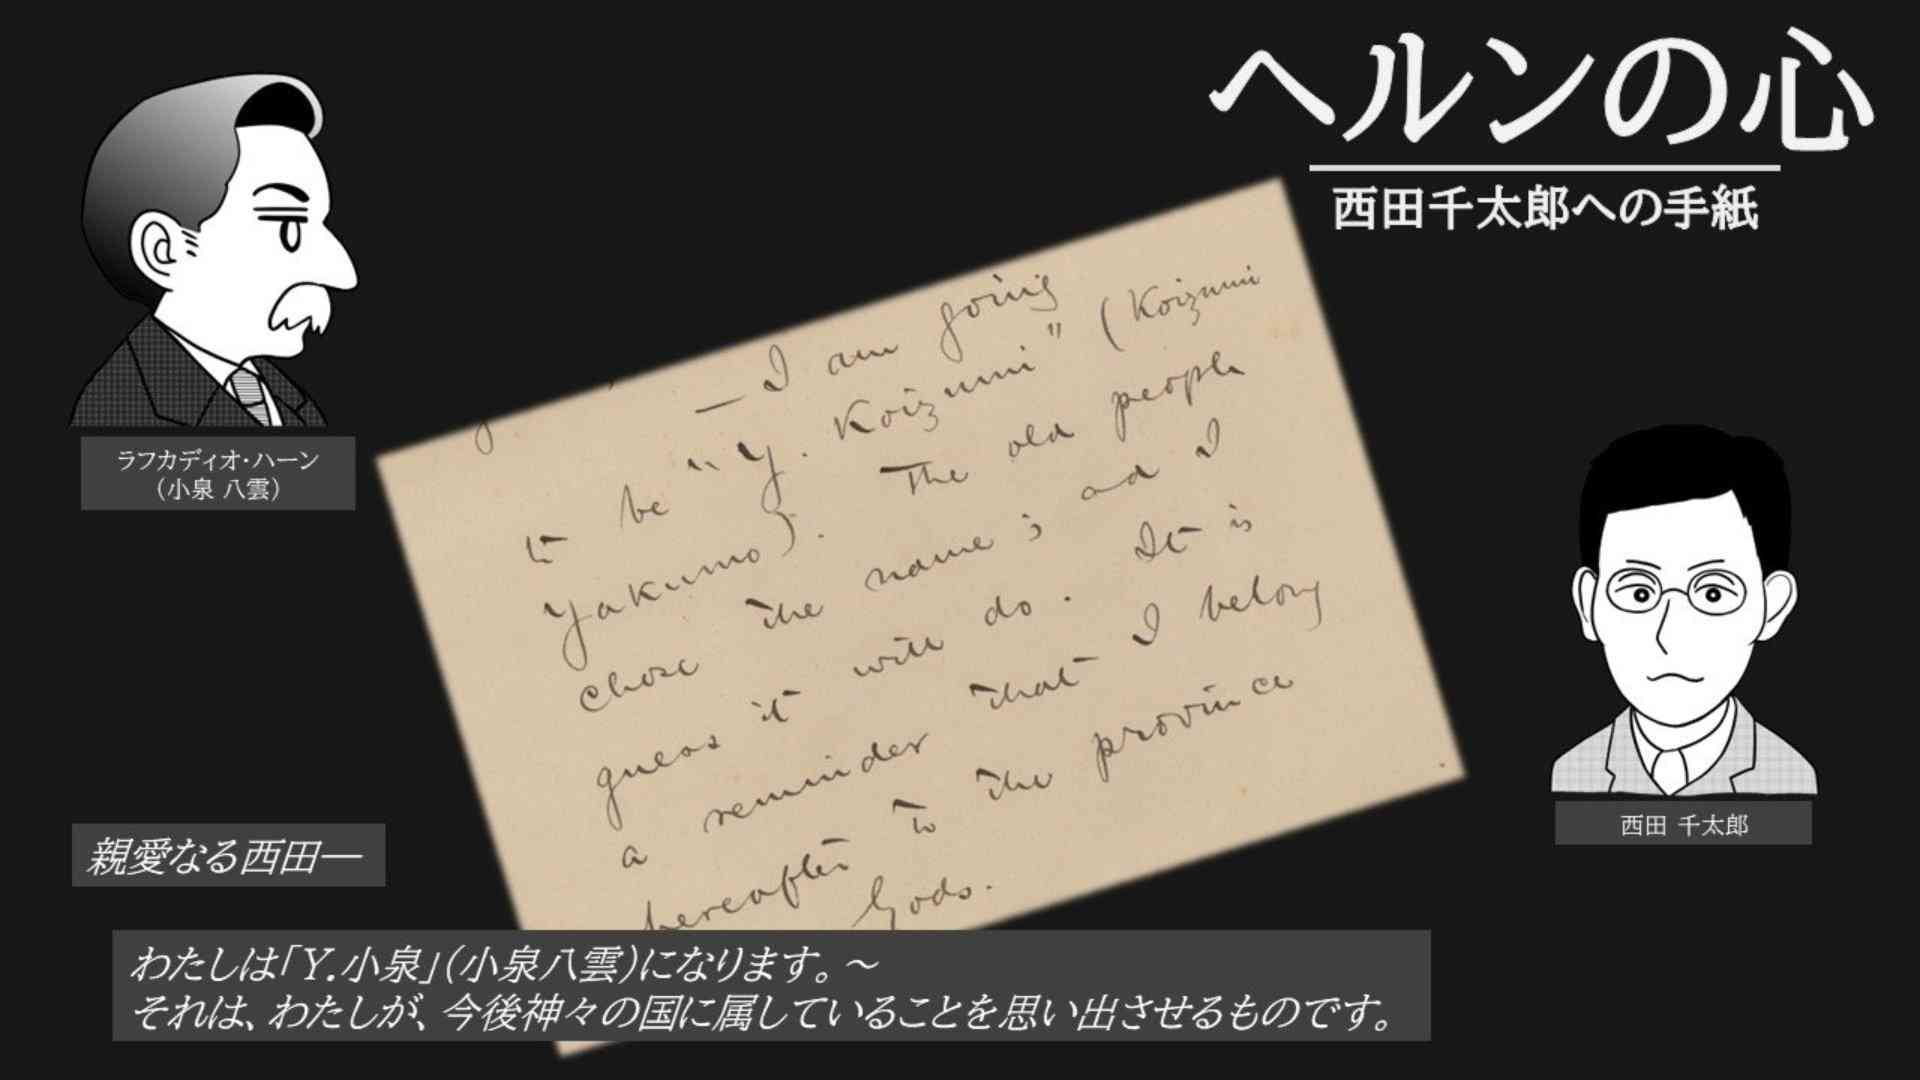 ヘルンの心
西田千太郎への手紙
ラフカディオ・ハーン
(小泉 八雲)
— I am going
to be "Y. Koizumi" (Koizumi
Yakumo). The old people
chose the name; and I
guess it will do. It is
a reminder that I belong
hereafter to the province
Gods.
西田 千太郎
親愛なる西田―
わたしは「Y.小泉」(小泉八雲)になります。～
それは、わたしが、今後神々の国に属していることを思い出させるものです。